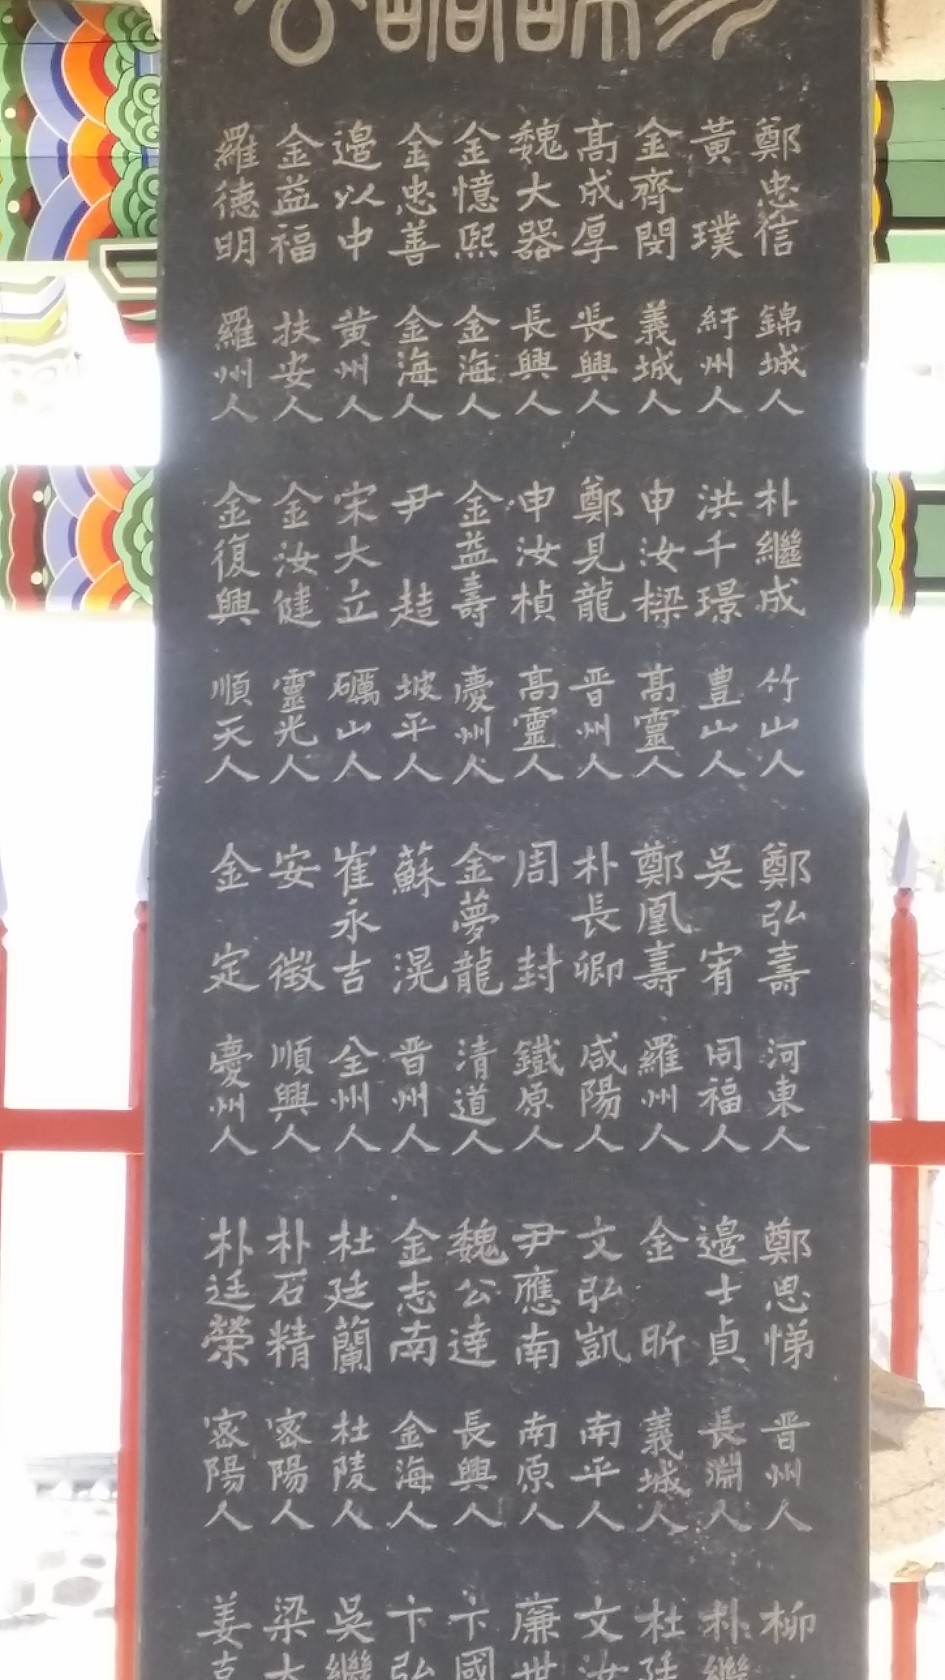 鄭忠信 錦城人
黃璞 紆州人
金齊閔 義城人
高成厚 長興人
魏大器 長興人
金憶熙 金海人
金忠善 金海人
邉以中 黃州人
金益福 扶安人
羅德明 羅州人
朴繼成 竹山人
洪千璟 豊山人
申汝樑 高靈人
鄭見龍 晋州人
申汝楨 高靈人
金益壽 慶州人
尹趌 坡平人
宋大立 礪山人
金汝健 靈光人
金復興 順天人
鄭弘壽 河東人
吳宥 同福人
鄭鳳壽 羅州人
朴長卿 咸陽人
周封 鐵原人
金夢龍 清道人
蘇滉 晋州人
崔永吉 全州人
安徵 順興人
金定 慶州人
鄭思悌 晋州人
邉士貞 長淵人
金昕 義城人
文弘凱 南平人
尹應南 南原人
魏公達 長興人
金志南 金海人
杜廷蘭 杜陵人
朴石精 密陽人
朴廷榮 密陽人
柳
朴繼
杜廷
文汝
廉世
卞國
卞弘
吳繼
梁大
姜